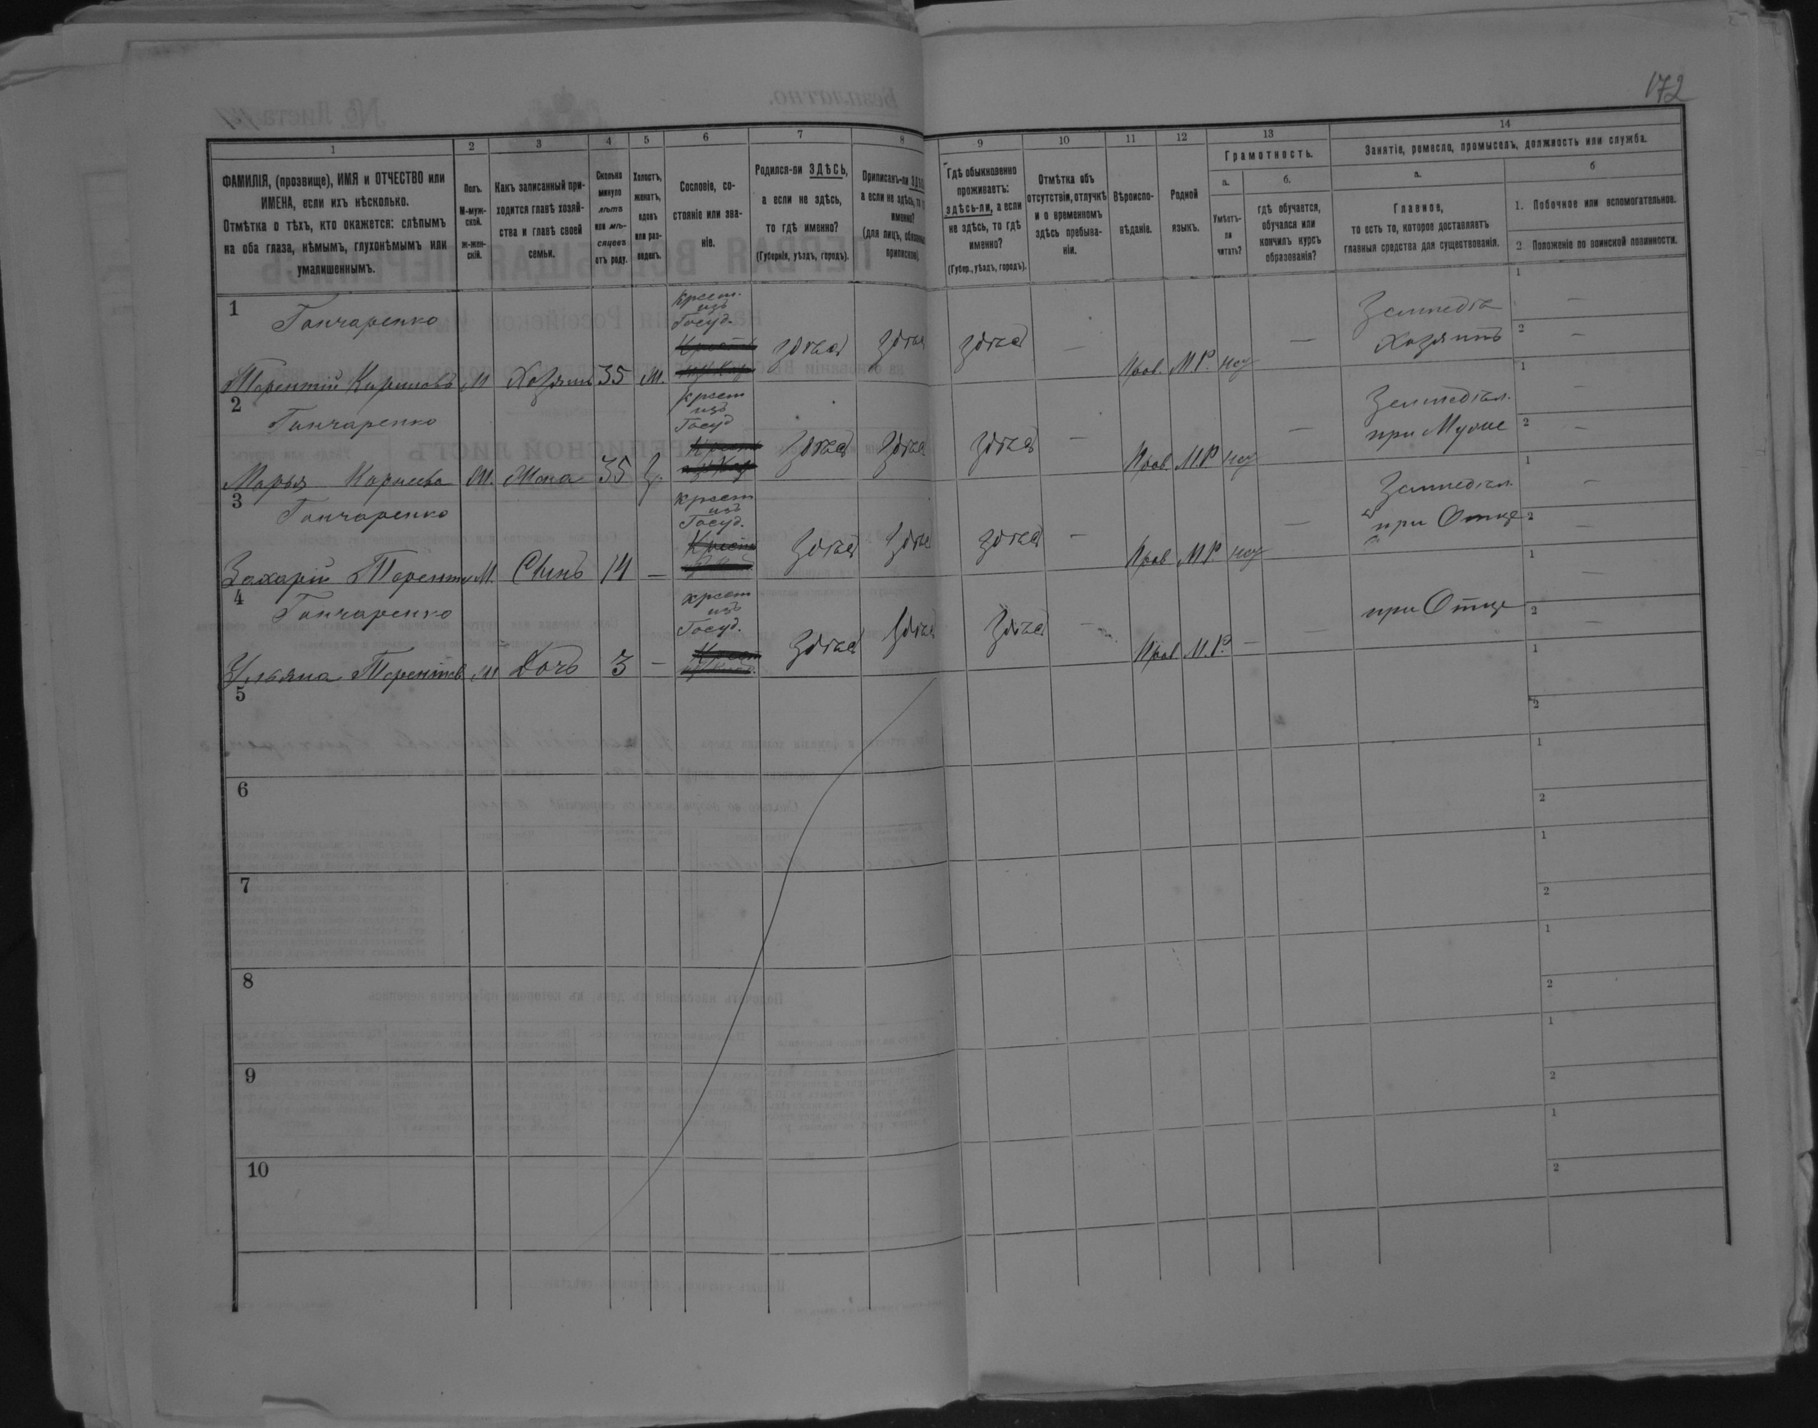 172
1
2
3
4
5
6
7
8
9
10
11
12
13
14
ФАМИЛІЯ, (прозвище), ИМЯ и ОТЧЕСТВО или
ИМЕНА, если ихъ нѣсколько.
Отмѣтка о тѣхъ, кто окажется: слѣпымъ
на оба глаза, нѣмымъ, глухонѣмымъ или
умалишеннымъ.
Полъ.
М-муж-
ской.
ж-жен-
скій.
Какъ записанный при-
ходится главѣ хозяй-
ства и главѣ своей
семьи.
Сколько
минуло
лѣтъ
или мѣ-
сяцевъ
отъ роду.
Холостъ,
женатъ,
вдовъ
или раз-
веденъ.
Сословіе, со-
стояніе или зва-
ніе.
Родился-ли ЗДѢСЬ,
а если не здѣсь,
то гдѣ именно?
(Губернія, уѣздъ, городъ).
Приписанъ-ли
а если не здѣсь, то
именно?
(для лицъ,
Гдѣ обыкновенно
проживаетъ:
здѣсь-ли, а если
не здѣсь, то гдѣ
именно?
(Губер., уѣздъ, городъ).
Отмѣтка объ
отсутствіи, отлучкѣ
и о временномъ
здѣсь пребыва-
ніи.
Вѣроиспо-
вѣданіе.
Родной
языкъ.
Грамотность.
а.
Умѣетъ-
ли
читать?
б.
гдѣ обучается,
обучался или
кончилъ курсъ
образованія?
Занятіе, ремесло, промыселъ, должность или служба.
а.
Главное,
то есть то, которое доставляетъ
главныя средства для существованія.
б
1. Побочное или вспомогательное.
2 Положеніе по воинской повинности.
1
Гончаренко
Терентій Кириловъ М Хозяинъ 35 ж.
Крест. изъ Госуд.
здѣсь здѣсь здѣсь — Прав. М.Р. нет — Земледѣл. хозяинъ
1 —
2 —
2
Гончаренко
Марья ж. Жена 35 з.
крест изъ Госуд
здѣсь здѣсь здѣсь — Прав М.Р нет — Земледѣл. при Муже
1 —
2 —
3
Гончаренко
Захарій Терентьев М. Сынъ 14 —
Крест изъ Госуд.
здѣсь здѣсь здѣсь — Прав М.Р нет — Земледѣл. при Отце
1 —
2 —
4
Гончаренко
Ульяна Терентьев ж Дочь 3 —
крест изъ Госуд.
здѣсь здѣсь здѣсь — Прав М.Р. — — при Отце
1 —
2 —
5
1
2
6
1
2
7
1
2
8
1
2
9
1
2
10
1
2